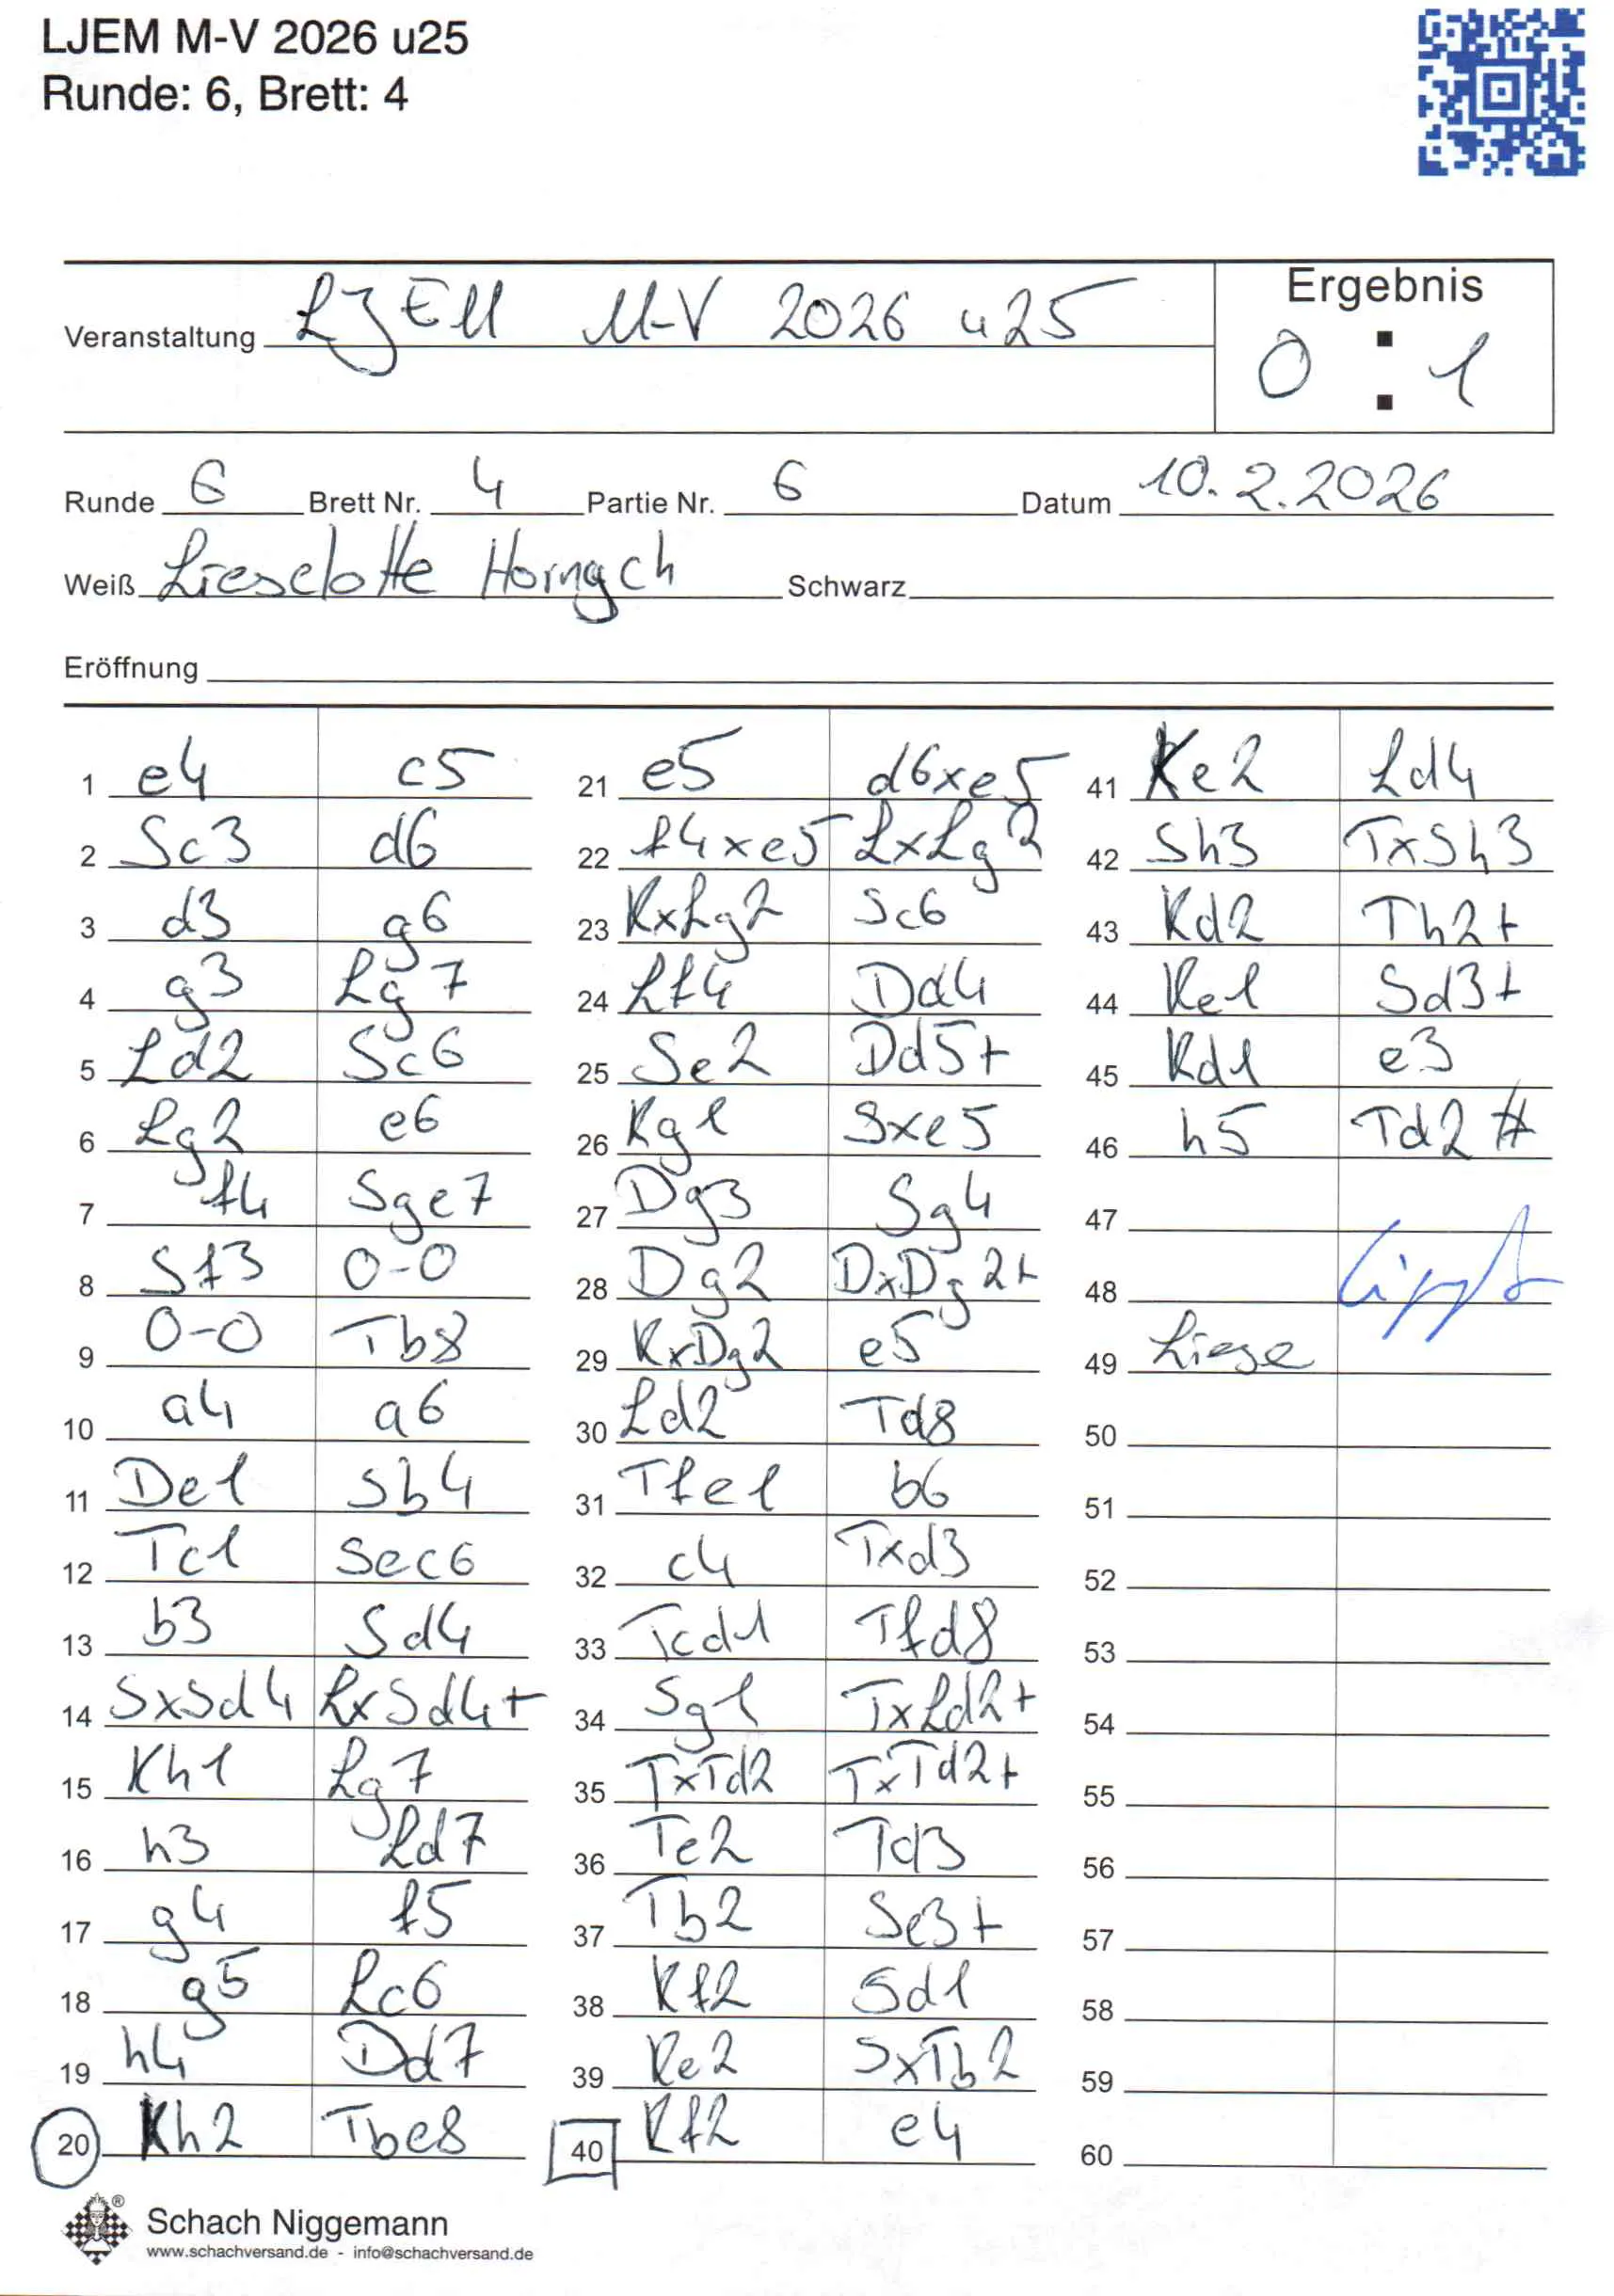 LJEM M-V 2026 u25
Runde: 6, Brett: 4
Veranstaltung LJEM M-V 2026 u25
Ergebnis
0 : 1
Runde 6 Brett Nr. 4 Partie Nr. 6 Datum 10.2.2026
Weiß Lieselotte Hornych Schwarz
Eröffnung
1 e4 c5
2 Sc3 d6
3 d3 g6
4 g3 Lg7
5 Ld2 Sc6
6 Lg2 e6
7 f4 Sge7
8 Sf3 0-0
9 0-0 Tb8
10 a4 a6
11 De1 Sb4
12 Tc1 Sec6
13 b3 Sd4
14 SxSd4 LxSd4+
15 Kh1 Lg7
16 h3 Ld7
17 g4 f5
18 g5 Lc6
19 h4 Dd7
20 Kh2 Tbe8
21 e5 d6xe5
22 f4xe5 LxLg2
23 KxLg2 Sc6
24 Lf4 Dd4
25 Se2 Dd5+
26 Kg1 Sxe5
27 Dg3 Sg4
28 Dg2 DxDg2+
29 KxDg2 e5
30 Ld2 Td8
31 Tfe1 b6
32 c4 Txd3
33 Tcd1 Tfd8
34 Sg1 TxLd2+
35 TxTd2 TxTd2+
36 Te2 Td3
37 Tb2 Se3+
38 Kf2 Sd1
39 Ke2 SxTb2
40 Kf2 e4
41 Ke2 Ld4
42 Sh3 TxSh3
43 Kd2 Th2+
44 Ke1 Sd3+
45 Kd1 e3
46 h5 Td2#
47
48
49 Liese
50
51
52
53
54
55
56
57
58
59
60
Schach Niggemann
www.schachversand.de - info@schachversand.de